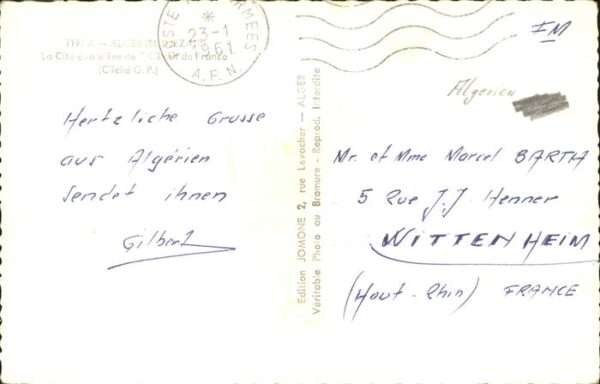 POSTE AUX ARMÉES
*
23-1
1961
A.F.N.
FM
(Cliché O.P.)
Algerien
Hertzliche Grusse
aus Algérien
Sendet ihnen
Gilbert
Edition JOMONE 2, rue Lavacher — ALGER
Véritable Photo au Bromure - Reprod. Interdite
Mr. et Mme Marcel BARTH
5 Rue J.J. Henner
WITTENHEIM
(Haut-Rhin) FRANCE